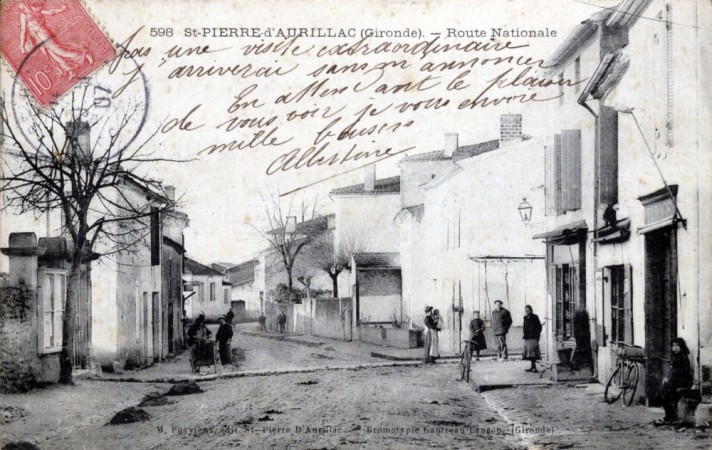 598 St-PIERRE-d'AURILLAC (Gironde). — Route Nationale
pas une visite extraordinaire
j'arriverai sans m'annoncer
En attendant le plaisir
de vous voir je vous envoie
mille baisers
Albertine
10c
07
M. Puyvieux, edit. St-Pierre D'Aurillac — Bromotypie Gautreau Langon. (Gironde)